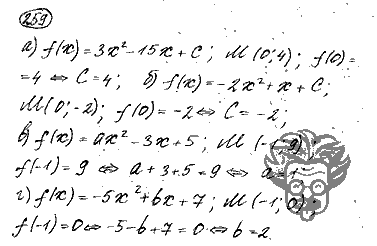 259
а) f(x) = 3x² - 15x + C; M(0; 4); f(0) =
= 4 ⇔ C = 4; б) f(x) = -2x² + x + C;
M(0; -2); f(0) = -2 ⇔ C = -2;
в) f(x) = ax² - 3x + 5; M(-1; 9);
f(-1) = 9 ⇔ a + 3 + 5 = 9 ⇔ a = 1
г) f(x) = -5x² + bx + 7; M(-1; 0);
f(-1) = 0 ⇔ -5 - b + 7 = 0 ⇔ b = 2